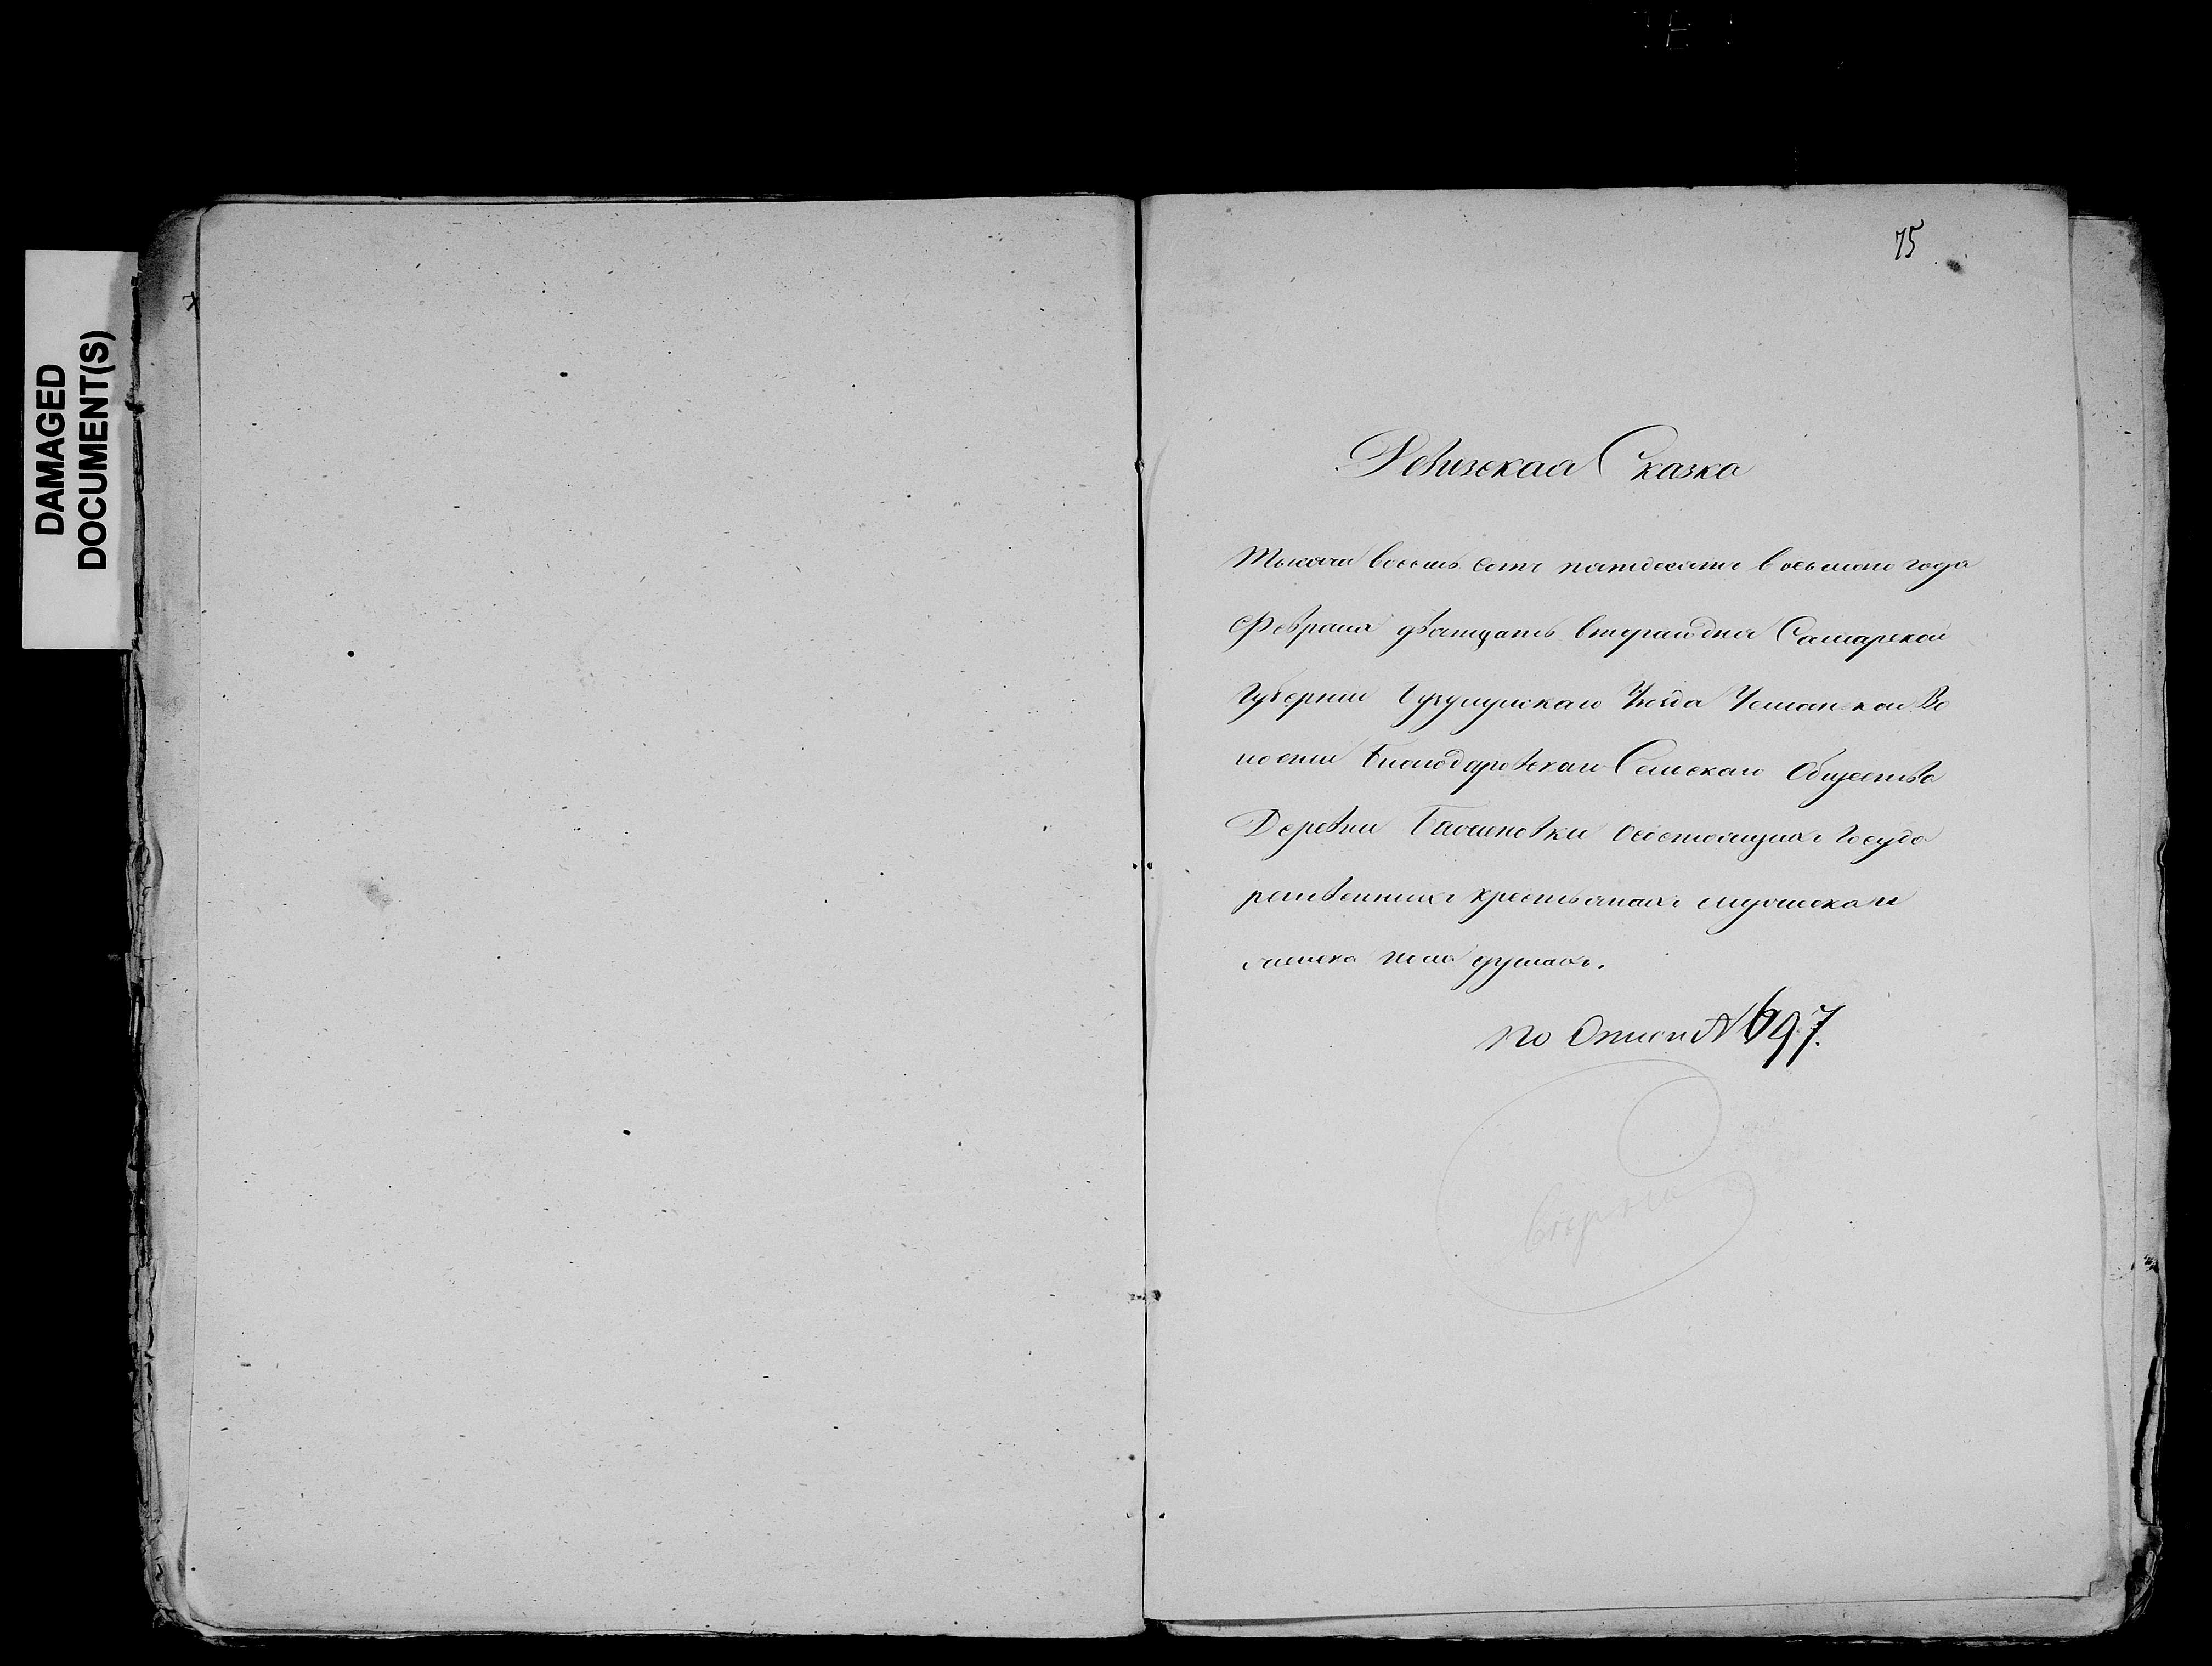 DAMAGED
DOCUMENT(S)
75
Ревизская Сказка
Тысяча восемь сотъ пятдесятъ восьмаго года
Февраля дватцать втораго дня Самарской
Губернии Бузулукскаго Уѣзда Во
лости Сельскаго Общества
Деревни о состоящихъ Госуда
рственныхъ крестьянахъ мужеска и
женска пола душахъ.
По Описи № 697.